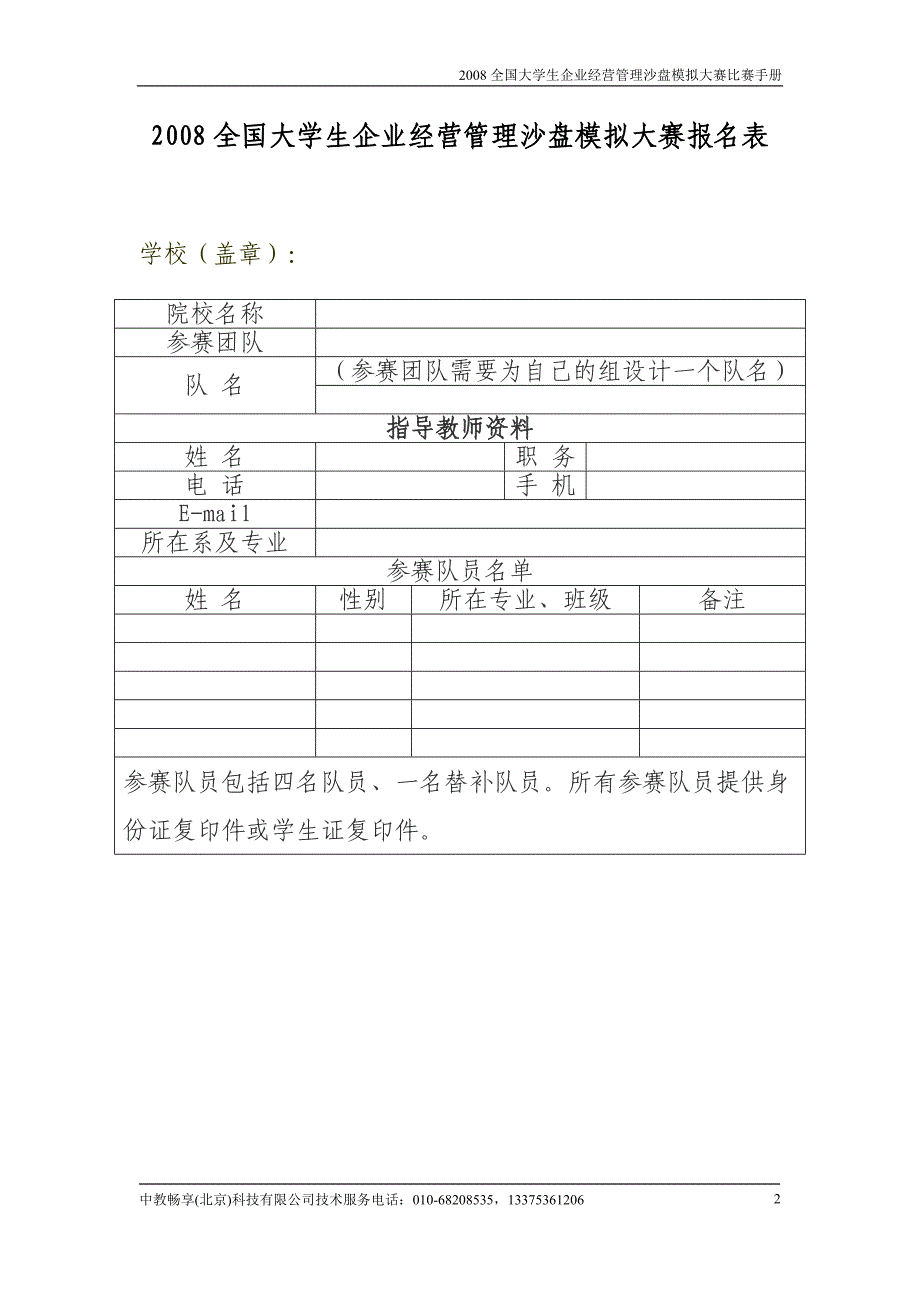 2008 全国大学生企业经营管理沙盘模拟大赛比赛手册
2008 全国大学生企业经营管理沙盘模拟大赛报名表
学校（盖章）：
院校名称
参赛团队
队 名 （参赛团队需要为自己的组设计一个队名）
指导教师资料
姓 名 职 务
电 话 手 机
E-mail
所在系及专业
参赛队员名单
姓 名 性别 所在专业、班级 备注
参赛队员包括四名队员、一名替补队员。所有参赛队员提供身
份证复印件或学生证复印件。
中教畅享(北京)科技有限公司技术服务电话：010-68208535，13375361206 2